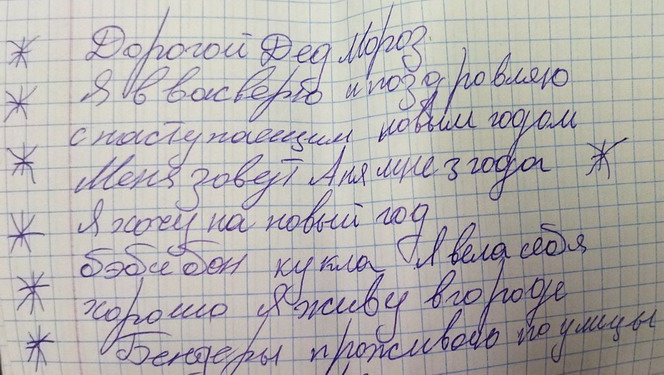 Дорогой Дед Мороз
Я в вас верю и поздровляю
с наступающим новым годом
Меня зовут Аня мне 3 года
Я хочу на новый год
бэби бон кукла Я вела себя
хорошо Я живу в городе
Бендеры проживаю по улицы